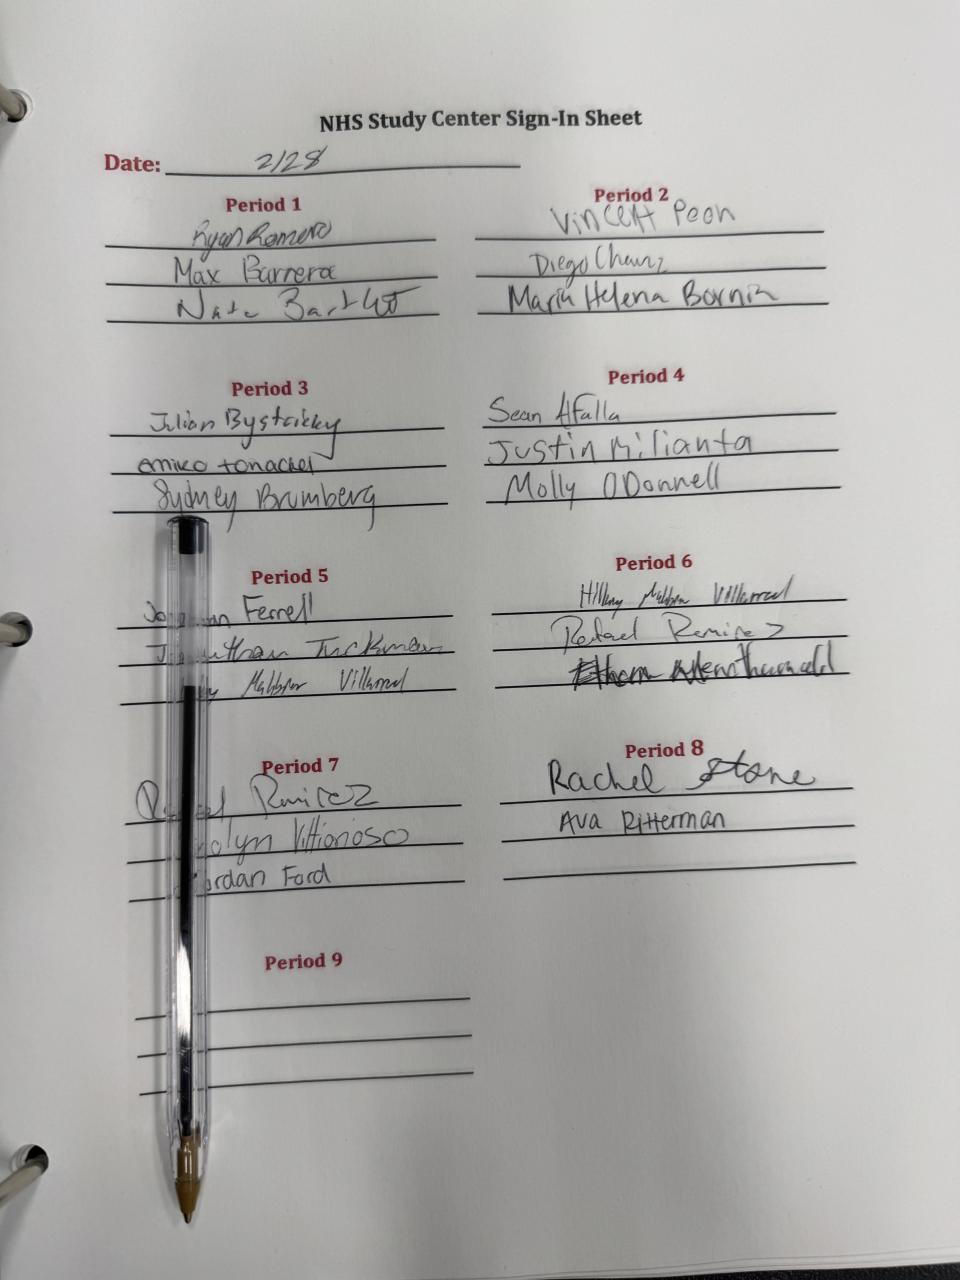 NHS Study Center Sign-In Sheet
Date: 2/28
Period 1
Ryan Romero
Max Barrera
Nate Bartlett
Period 2
Vincent Peon
Diego
Maria Helena Bornin
Period 3
Julian Bystricky
emiko tonachel
Sydney Brumberg
Period 4
Sean Alfalla
Justin Milianta
Molly ODonnell
Period 5
Ferrell
Tuckman
Villarreal
Period 6
Hillary Villarreal
Rafael Ramirez
Period 7
Ramirez
Vittorioso
Jordan Ford
Period 8
Rachel Stone
Ava Ritterman
Period 9